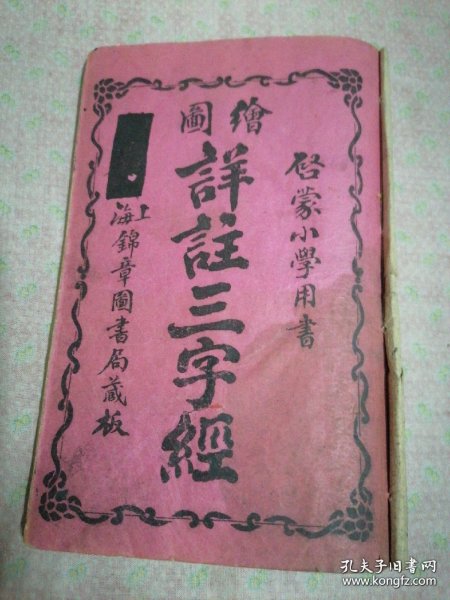 啓蒙小學用書
繪圖
詳註三字經
上海錦章圖書局藏板
孔夫子旧书网
www.kongfz.com